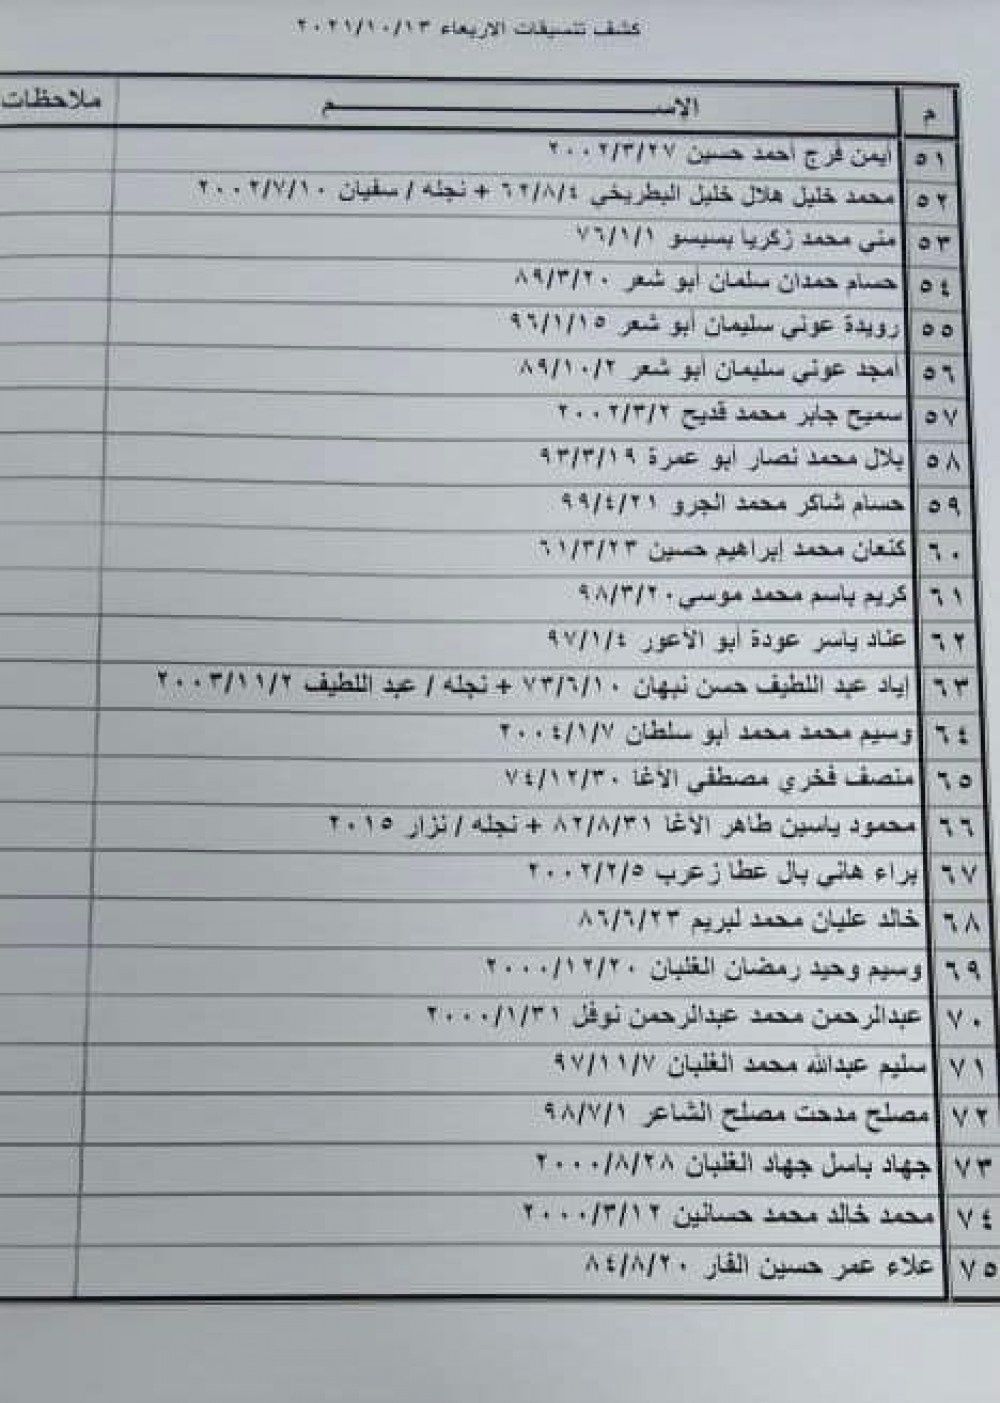 كشف تنسيقات الاربعاء ٢٠٢١/١٠/١٣
م الاســـــــــــم ملاحظات
٥١ أيمن فرج أحمد حسين ٢٠٠٢/٣/٢٧
٥٢ محمد خليل هلال خليل البطريخي ٦٢/٨/٤ + نجله / سفيان ٢٠٠٢/٧/١٠
٥٣ مني محمد زكريا بسيسو ٧٦/١/١
٥٤ حسام حمدان سلمان أبو شعر ٨٩/٣/٢٠
٥٥ رويدة عوني سليمان أبو شعر ٩٦/١/١٥
٥٦ أمجد عوني سليمان أبو شعر ٨٩/١٠/٢
٥٧ سميح جابر محمد قديح ٢٠٠٢/٣/٢
٥٨ بلال محمد نصار أبو عمرة ٩٣/٣/١٩
٥٩ حسام شاكر محمد الجرو ٩٩/٤/٢١
٦٠ كنعان محمد إبراهيم حسين ٦١/٣/٢٣
٦١ كريم باسم محمد موسي ٩٨/٣/٢٠
٦٢ عناد ياسر عودة أبو الأعور ٩٧/١/٤
٦٣ إياد عبد اللطيف حسن نبهان ٧٣/٦/١٠ + نجله / عبد اللطيف ٢٠٠٣/١١/٢
٦٤ وسيم محمد محمد أبو سلطان ٢٠٠٤/١/٧
٦٥ منصف فخري مصطفي الأغا ٧٤/١٢/٣٠
٦٦ محمود ياسين طاهر الاغا ٨٢/٨/٣١ + نجله / نزار ٢٠١٥
٦٧ براء هاني بال عطا زعرب ٢٠٠٢/٢/٥
٦٨ خالد عليان محمد لبريم ٨٦/٦/٢٣
٦٩ وسيم وحيد رمضان الغلبان ٢٠٠٠/١٢/٢٠
٧٠ عبدالرحمن محمد عبدالرحمن نوفل ٢٠٠٠/١/٣١
٧١ سليم عبدالله محمد الغلبان ٩٧/١١/٧
٧٢ مصلح مدحت مصلح الشاعر ٩٨/٧/١
٧٣ جهاد باسل جهاد الغلبان ٢٠٠٠/٨/٢٨
٧٤ محمد خالد محمد حسانين ٢٠٠٠/٣/١٢
٧٥ علاء عمر حسين الفار ٨٤/٨/٢٠